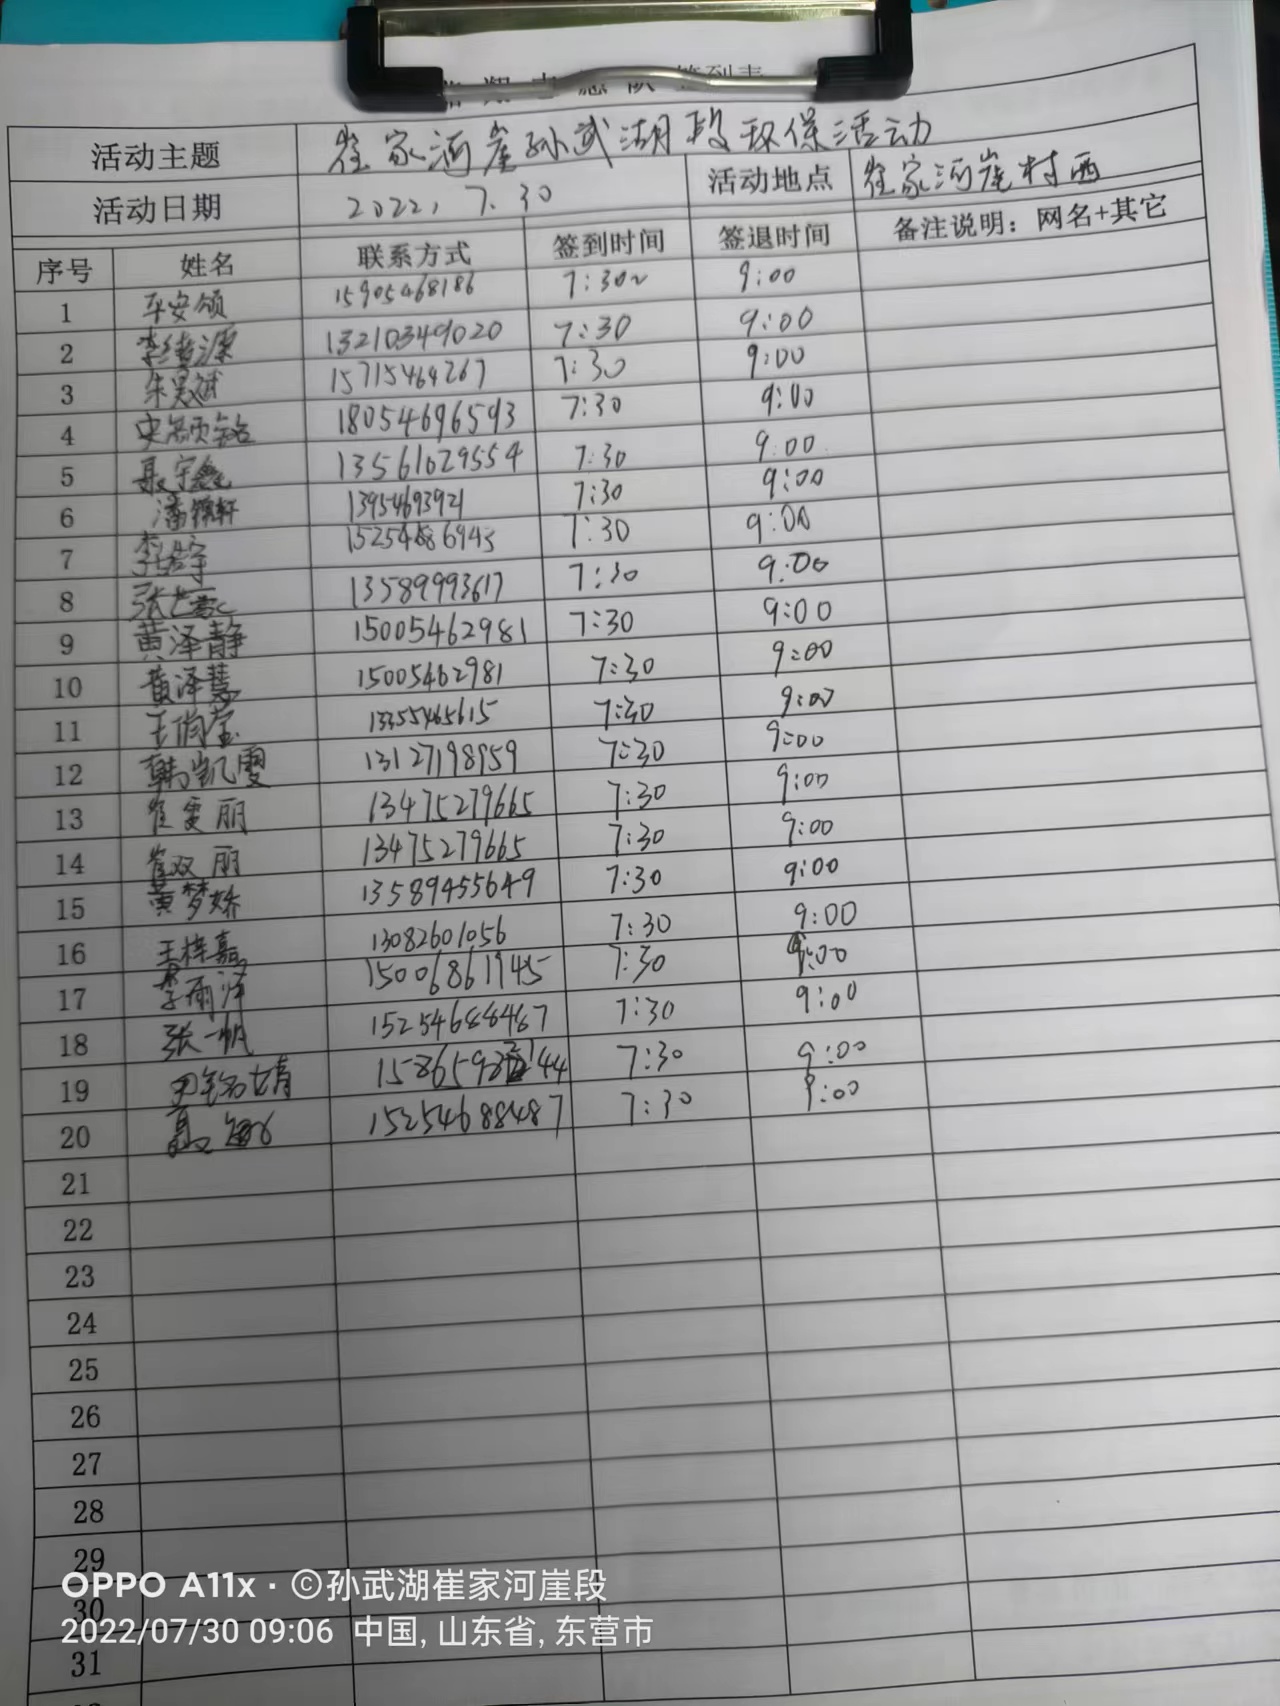 签到表
活动主题 崔家河崖孙武湖段环保活动
活动日期 2022, 7.30 活动地点 崔家河崖村西
序号 姓名 联系方式 签到时间 签退时间 备注说明：网名+其它
1 平安颂 15905468186 7:30~ 9:00
2 李绪源 13210349020 7:30 9:00
3 朱昊斌 15715464267 7:30 9:00
4 18054696593 7:30 9:00
5 聂宇鑫 13561029554 7:30 9:00
6 潘锦轩 13954693921 7:30 9:00
7 7:30 9:00
8 13589993617 7:30 9:00
9 黄泽静 15005462981 7:30 9:00
10 黄泽慧 15005462981 7:30 9:00
11 7:30 9:00
12 韩凯雯 13127198959 7:30 9:00
13 崔雯丽 13475279665 7:30 9:00
14 崔双丽 13475279665 7:30 9:00
15 黄梦娇 13589455649 7:30 9:00
16 王梓嘉 13082601056 7:30 9:00
17 李雨泽 15006861945 7:30 9:00
18 张一帆 15254688487 7:30 9:00
19 7:30 9:00
20 15254688487 7:30 9:00
21
22
23
24
25
26
27
28
29
30
31
OPPO A11x · ©孙武湖崔家河崖段
2022/07/30 09:06 中国, 山东省, 东营市